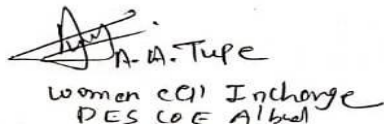 A.A. Tupe
women cell Incharge
DES COE A'bad